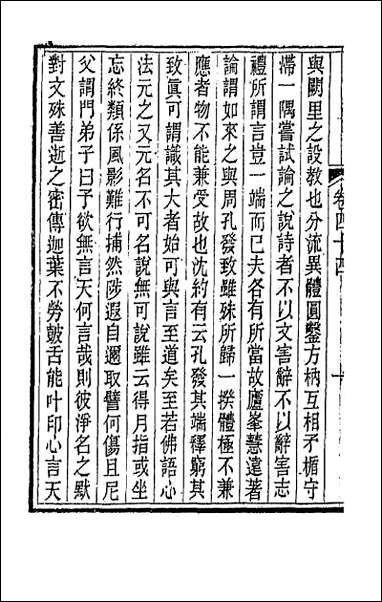 卷四十四
十
與闕里之設教也分流異體圓鑿方枘互相矛楯守
滯一隅嘗試論之說詩者不以文害辭不以辭害志
禮所謂言豈一端而已夫各有所當故廬峯慧遠著
論謂如來之與周孔發致雖殊所歸一揆體極不兼
應者物不能兼受故也沈約有云孔發其端釋窮其
致眞可謂識其大者始可與言至道矣至若佛語心
法元之又元名不可名說無可說雖云得月指或坐
忘終類係風影難行捕然陟遐自邇取譬何傷且尼
父謂門弟子曰予欲無言天何言哉則彼淨名之默
對文殊善逝之密傳迦葉不勞皷舌能叶印心言天